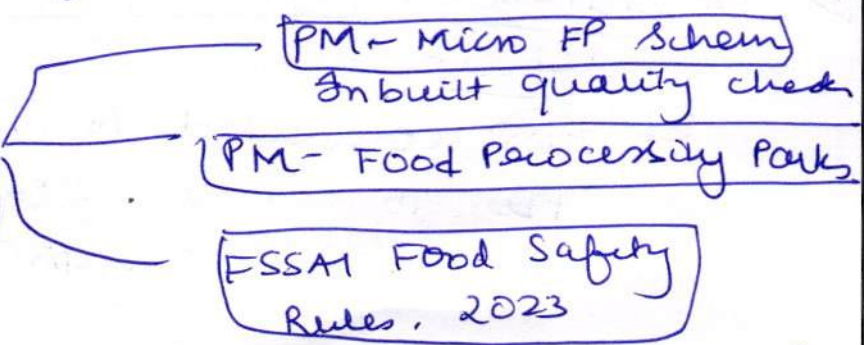 PM- Micro FP Schem
Inbuilt quality check
PM- Food Processing Parks
FSSAI Food Safety
Rules. 2023